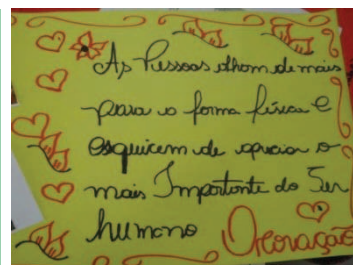 As Pessoas olham demais
para a forma física e
esquicem de apreciar o
mais Importante do Ser
humano Ocoração